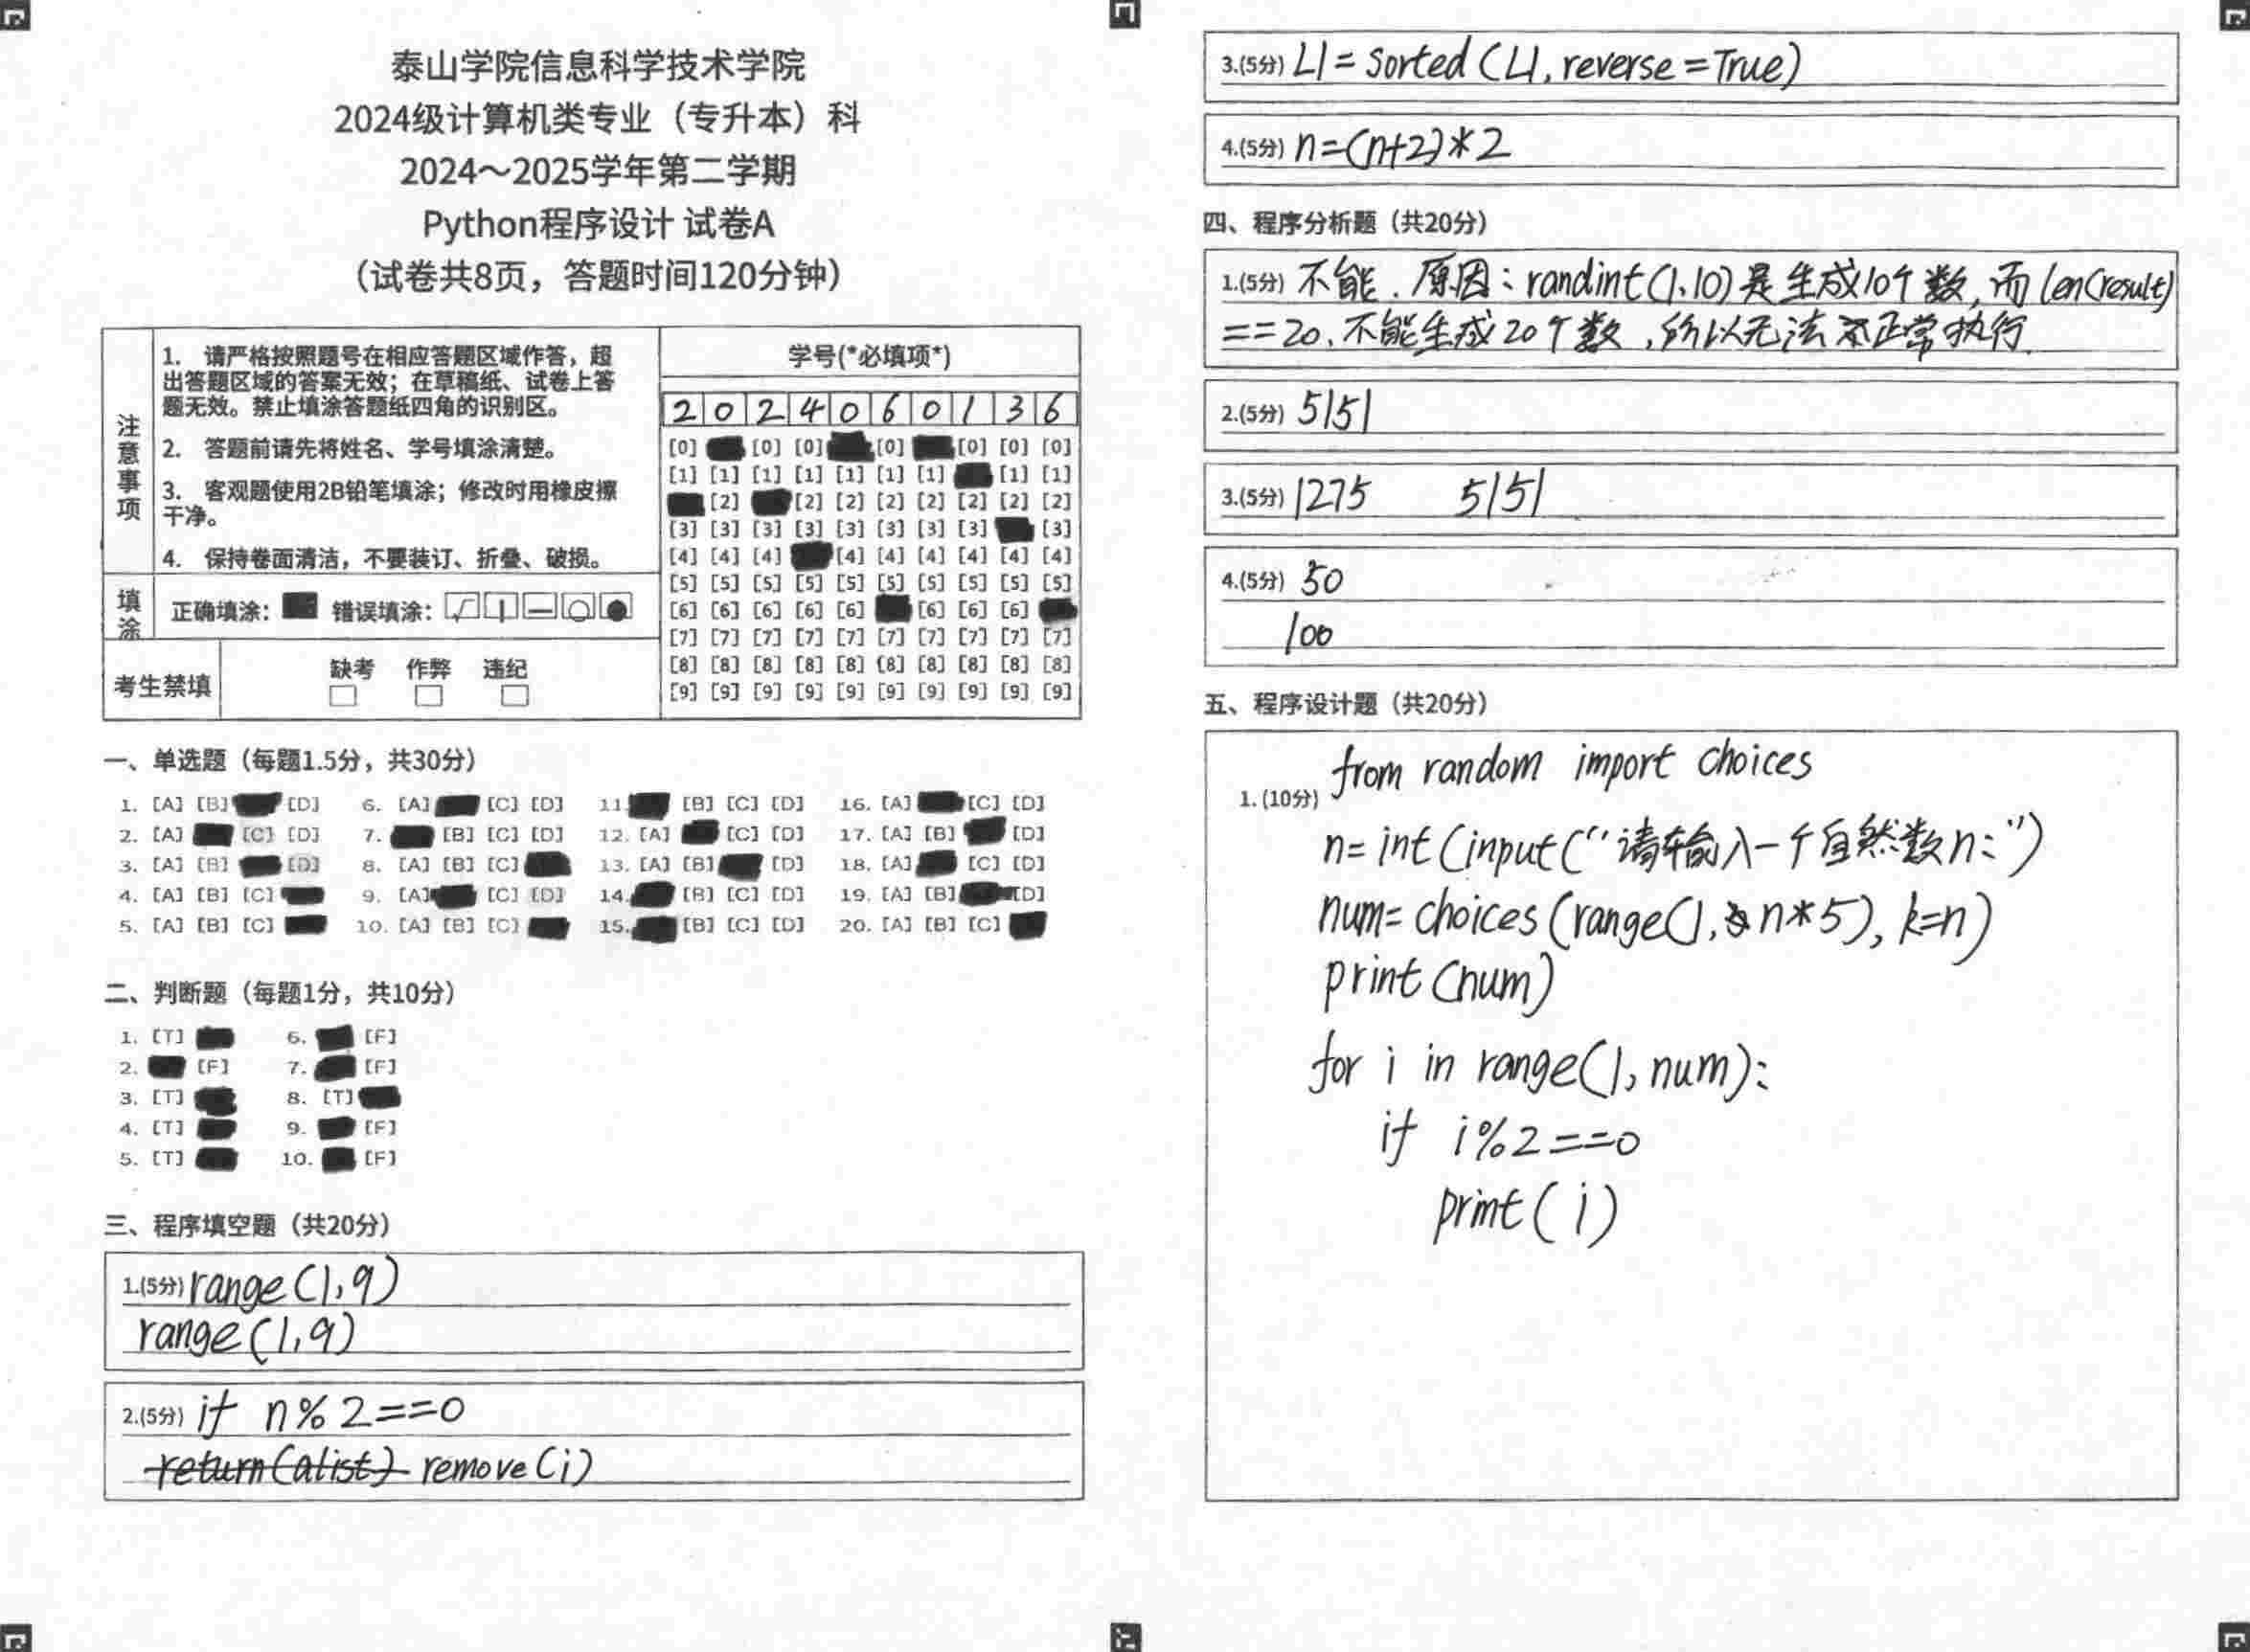 泰山学院信息科学技术学院
2024级计算机类专业（专升本）科
2024～2025学年第二学期
Python程序设计 试卷A
（试卷共8页，答题时间120分钟）
注意事项
1. 请严格按照题号在相应答题区域作答，超
出答题区域的答案无效；在草稿纸、试卷上答
题无效。禁止填涂答题纸四角的识别区。
2. 答题前请先将姓名、学号填涂清楚。
3. 客观题使用2B铅笔填涂；修改时用橡皮擦
干净。
4. 保持卷面清洁，不要装订、折叠、破损。
填涂
正确填涂： 错误填涂：
考生禁填
缺考 作弊 违纪
学号(*必填项*)
2 0 2 4 0 6 0 1 3 6
[0] [0] [0] [0] [0] [0] [0]
[1] [1] [1] [1] [1] [1] [1] [1] [1]
[2] [2] [2] [2] [2] [2] [2] [2]
[3] [3] [3] [3] [3] [3] [3] [3] [3]
[4] [4] [4] [4] [4] [4] [4] [4] [4]
[5] [5] [5] [5] [5] [5] [5] [5] [5] [5]
[6] [6] [6] [6] [6] [6] [6] [6]
[7] [7] [7] [7] [7] [7] [7] [7] [7] [7]
[8] [8] [8] [8] [8] [8] [8] [8] [8] [8]
[9] [9] [9] [9] [9] [9] [9] [9] [9] [9]
一、单选题（每题1.5分，共30分）
1. [A] [B] [D] 6. [A] [C] [D] 11. [B] [C] [D] 16. [A] [C] [D]
2. [A] [C] [D] 7. [B] [C] [D] 12. [A] [C] [D] 17. [A] [B] [D]
3. [A] [B] [D] 8. [A] [B] [C] 13. [A] [B] [D] 18. [A] [C] [D]
4. [A] [B] [C] 9. [A] [C] [D] 14. [B] [C] [D] 19. [A] [B] [D]
5. [A] [B] [C] 10. [A] [B] [C] 15. [B] [C] [D] 20. [A] [B] [C]
二、判断题（每题1分，共10分）
1. [T] 6. [F]
2. [F] 7. [F]
3. [T] 8. [T]
4. [T] 9. [F]
5. [T] 10. [F]
三、程序填空题（共20分）
1.(5分) range(1,9)
range(1,9)
2.(5分) if n%2==0
return(alist) remove(i)
3.(5分) L1=sorted(L1,reverse=True)
4.(5分) n=(n+2)*2
四、程序分析题（共20分）
1.(5分) 不能．原因：randint(1,10)是生成10个数，而len(result)
==20，不能生成20个数，所以无法正常执行．
2.(5分) 5151
3.(5分) 1275 5151
4.(5分) 50
100
五、程序设计题（共20分）
from random import choices
1.(10分)
n=int(input("请输入一个自然数n:")
num=choices(range(1,n*5),k=n)
print(num)
for i in range(1,num):
if i%2==0
print(i)